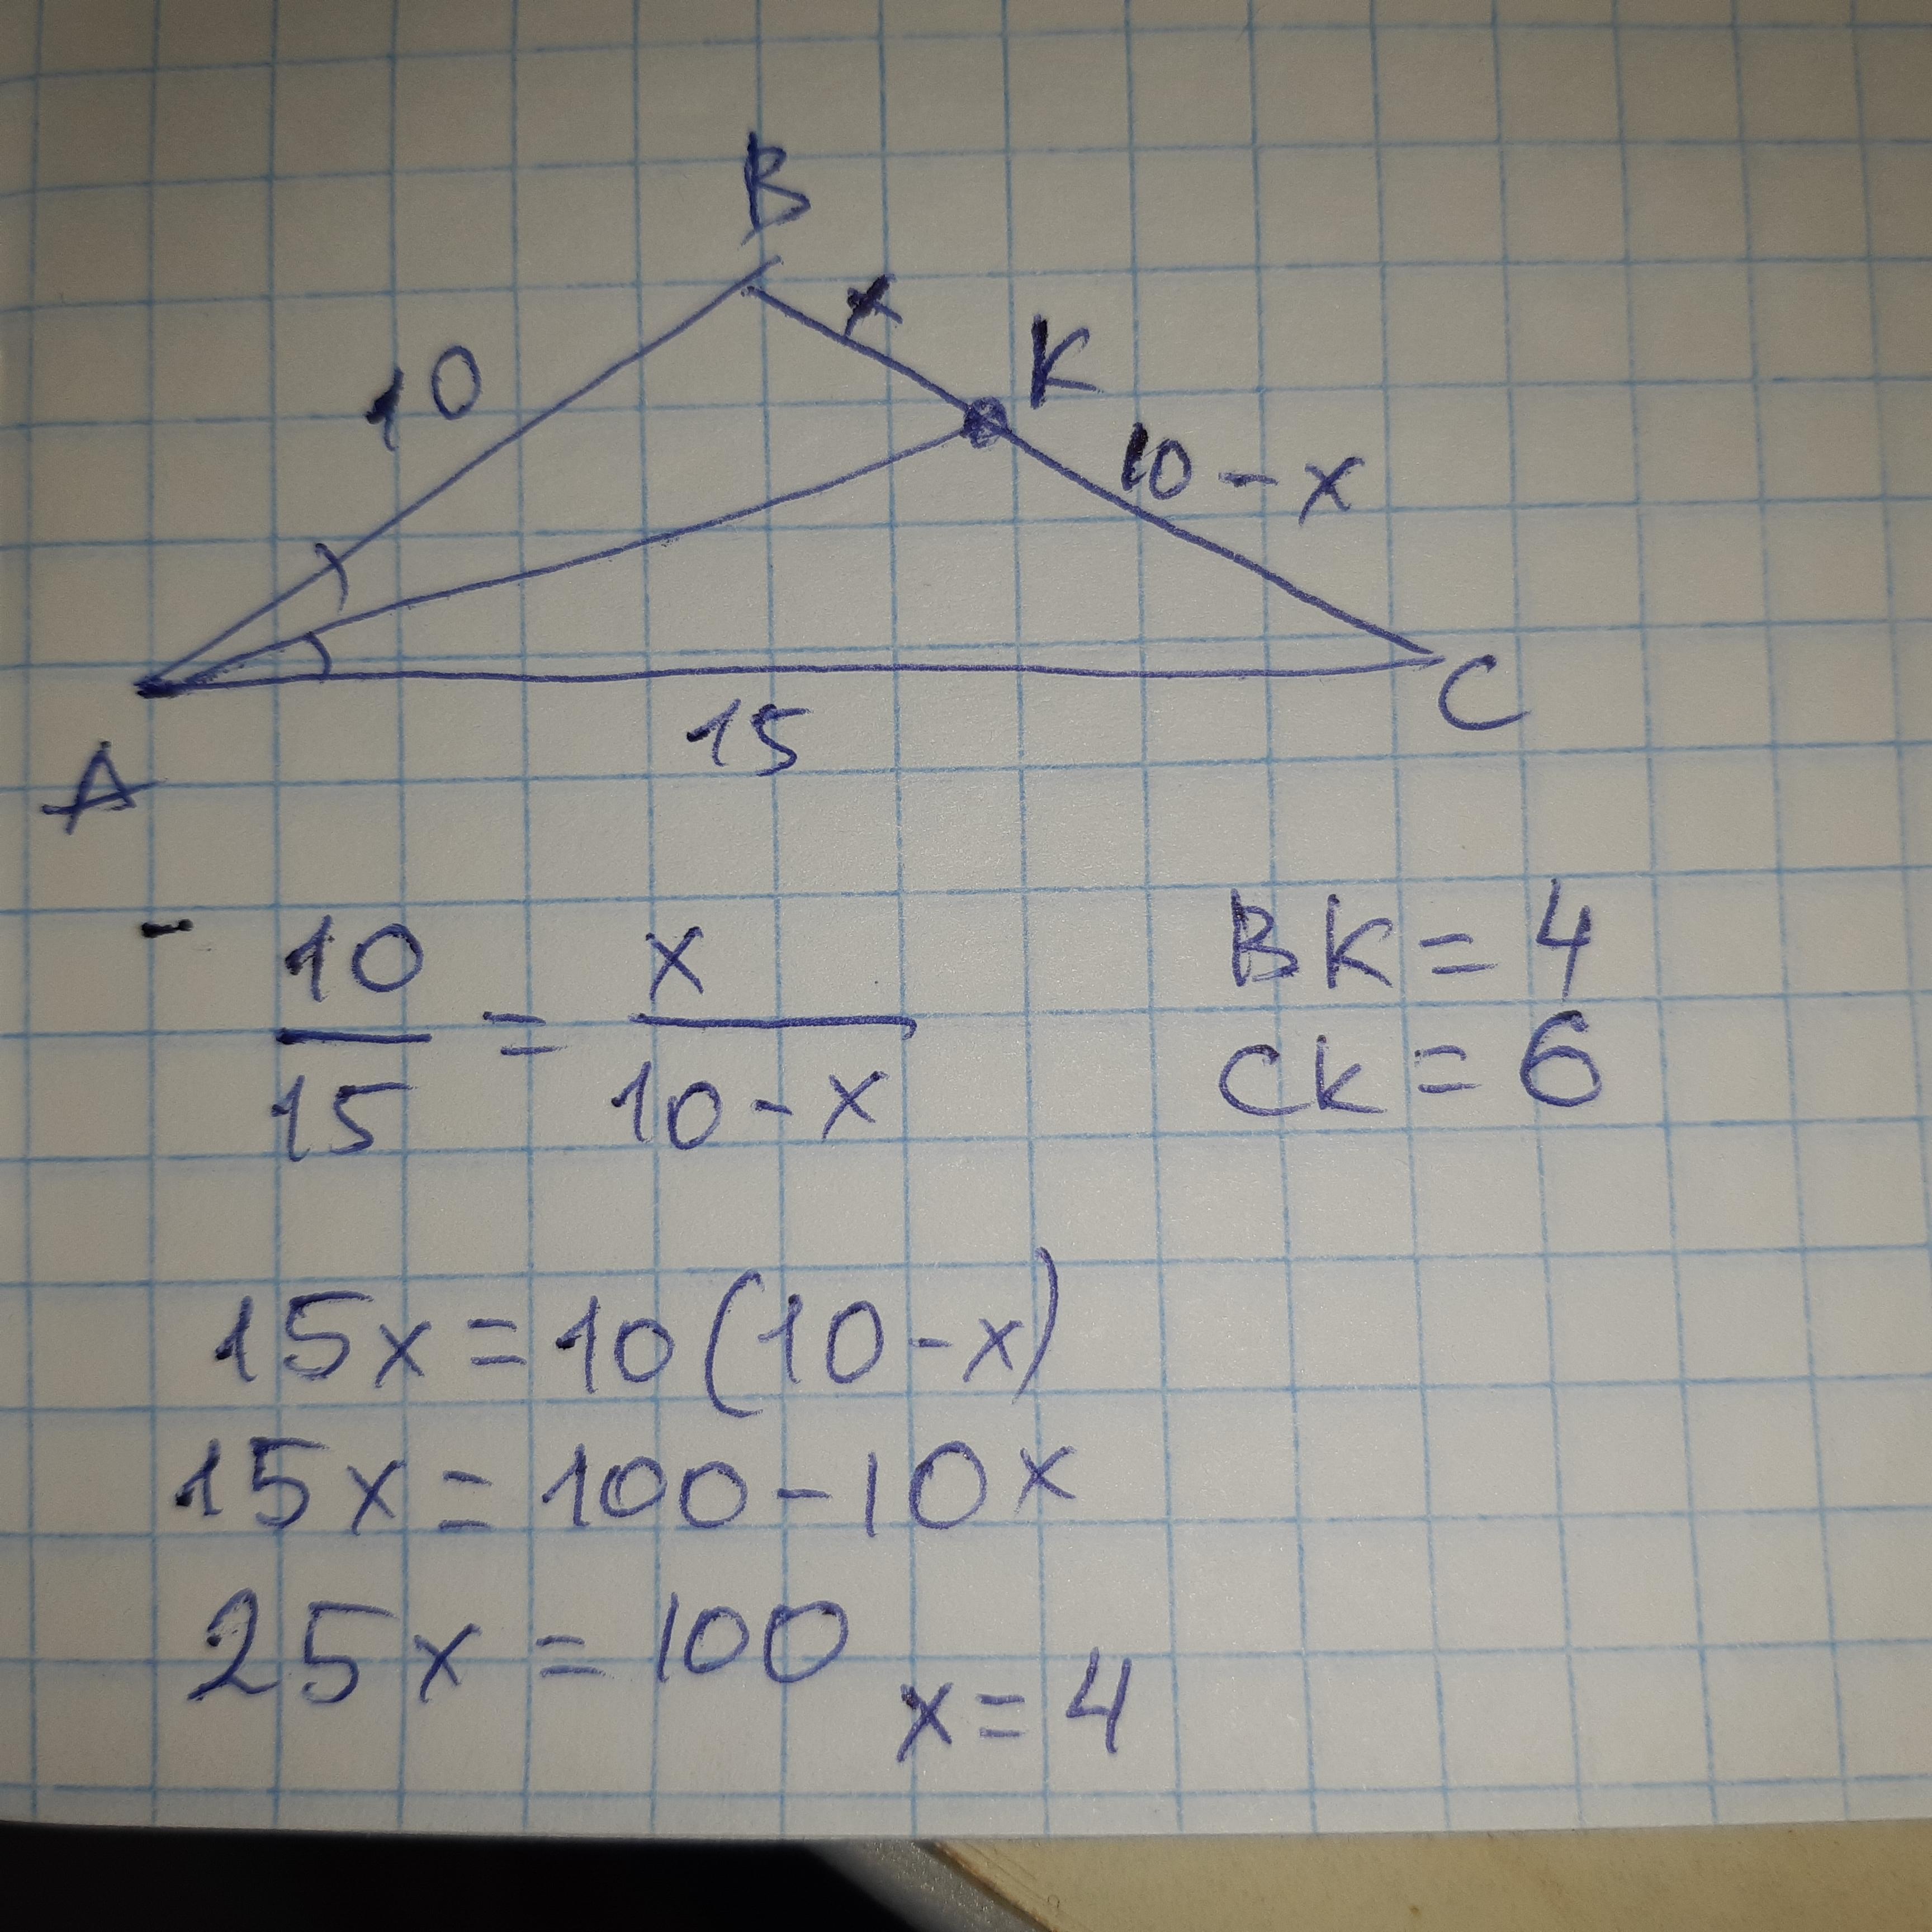 B
x
K
10
10 - x
15
C
A
10/15 = x/(10 - x)
BK = 4
CK = 6
15x = 10(10 - x)
15x = 100 - 10x
25x = 100
x = 4